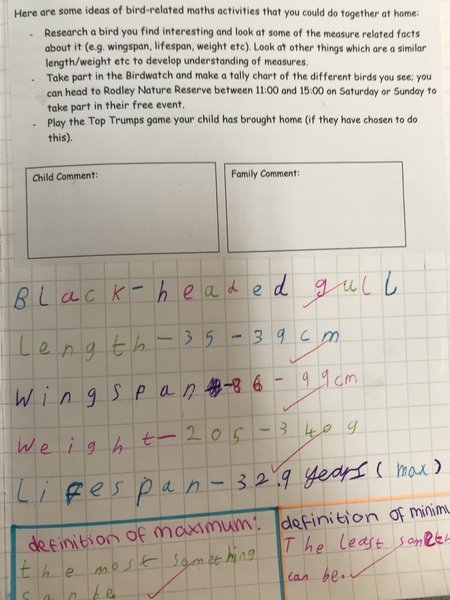 Here are some ideas of bird-related maths activities that you could do together at home:
- Research a bird you find interesting and look at some of the measure related facts
about it (e.g. wingspan, lifespan, weight etc). Look at other things which are a similar
length/weight etc to develop understanding of measures.
- Take part in the Birdwatch and make a tally chart of the different birds you see; you
can head to Rodley Nature Reserve between 11:00 and 15:00 on Saturday or Sunday to
take part in their free event.
- Play the Top Trumps game your child has brought home (if they have chosen to do
this).
Child Comment:
Family Comment:
Black-headed gull
Length-35-39cm
Wingspan-86-99cm
Weight-205-340g
Lifespan-32.9 years (max)
definition of maxsmum:
the most something
can be.
definition of minimu
The least someth
can be.